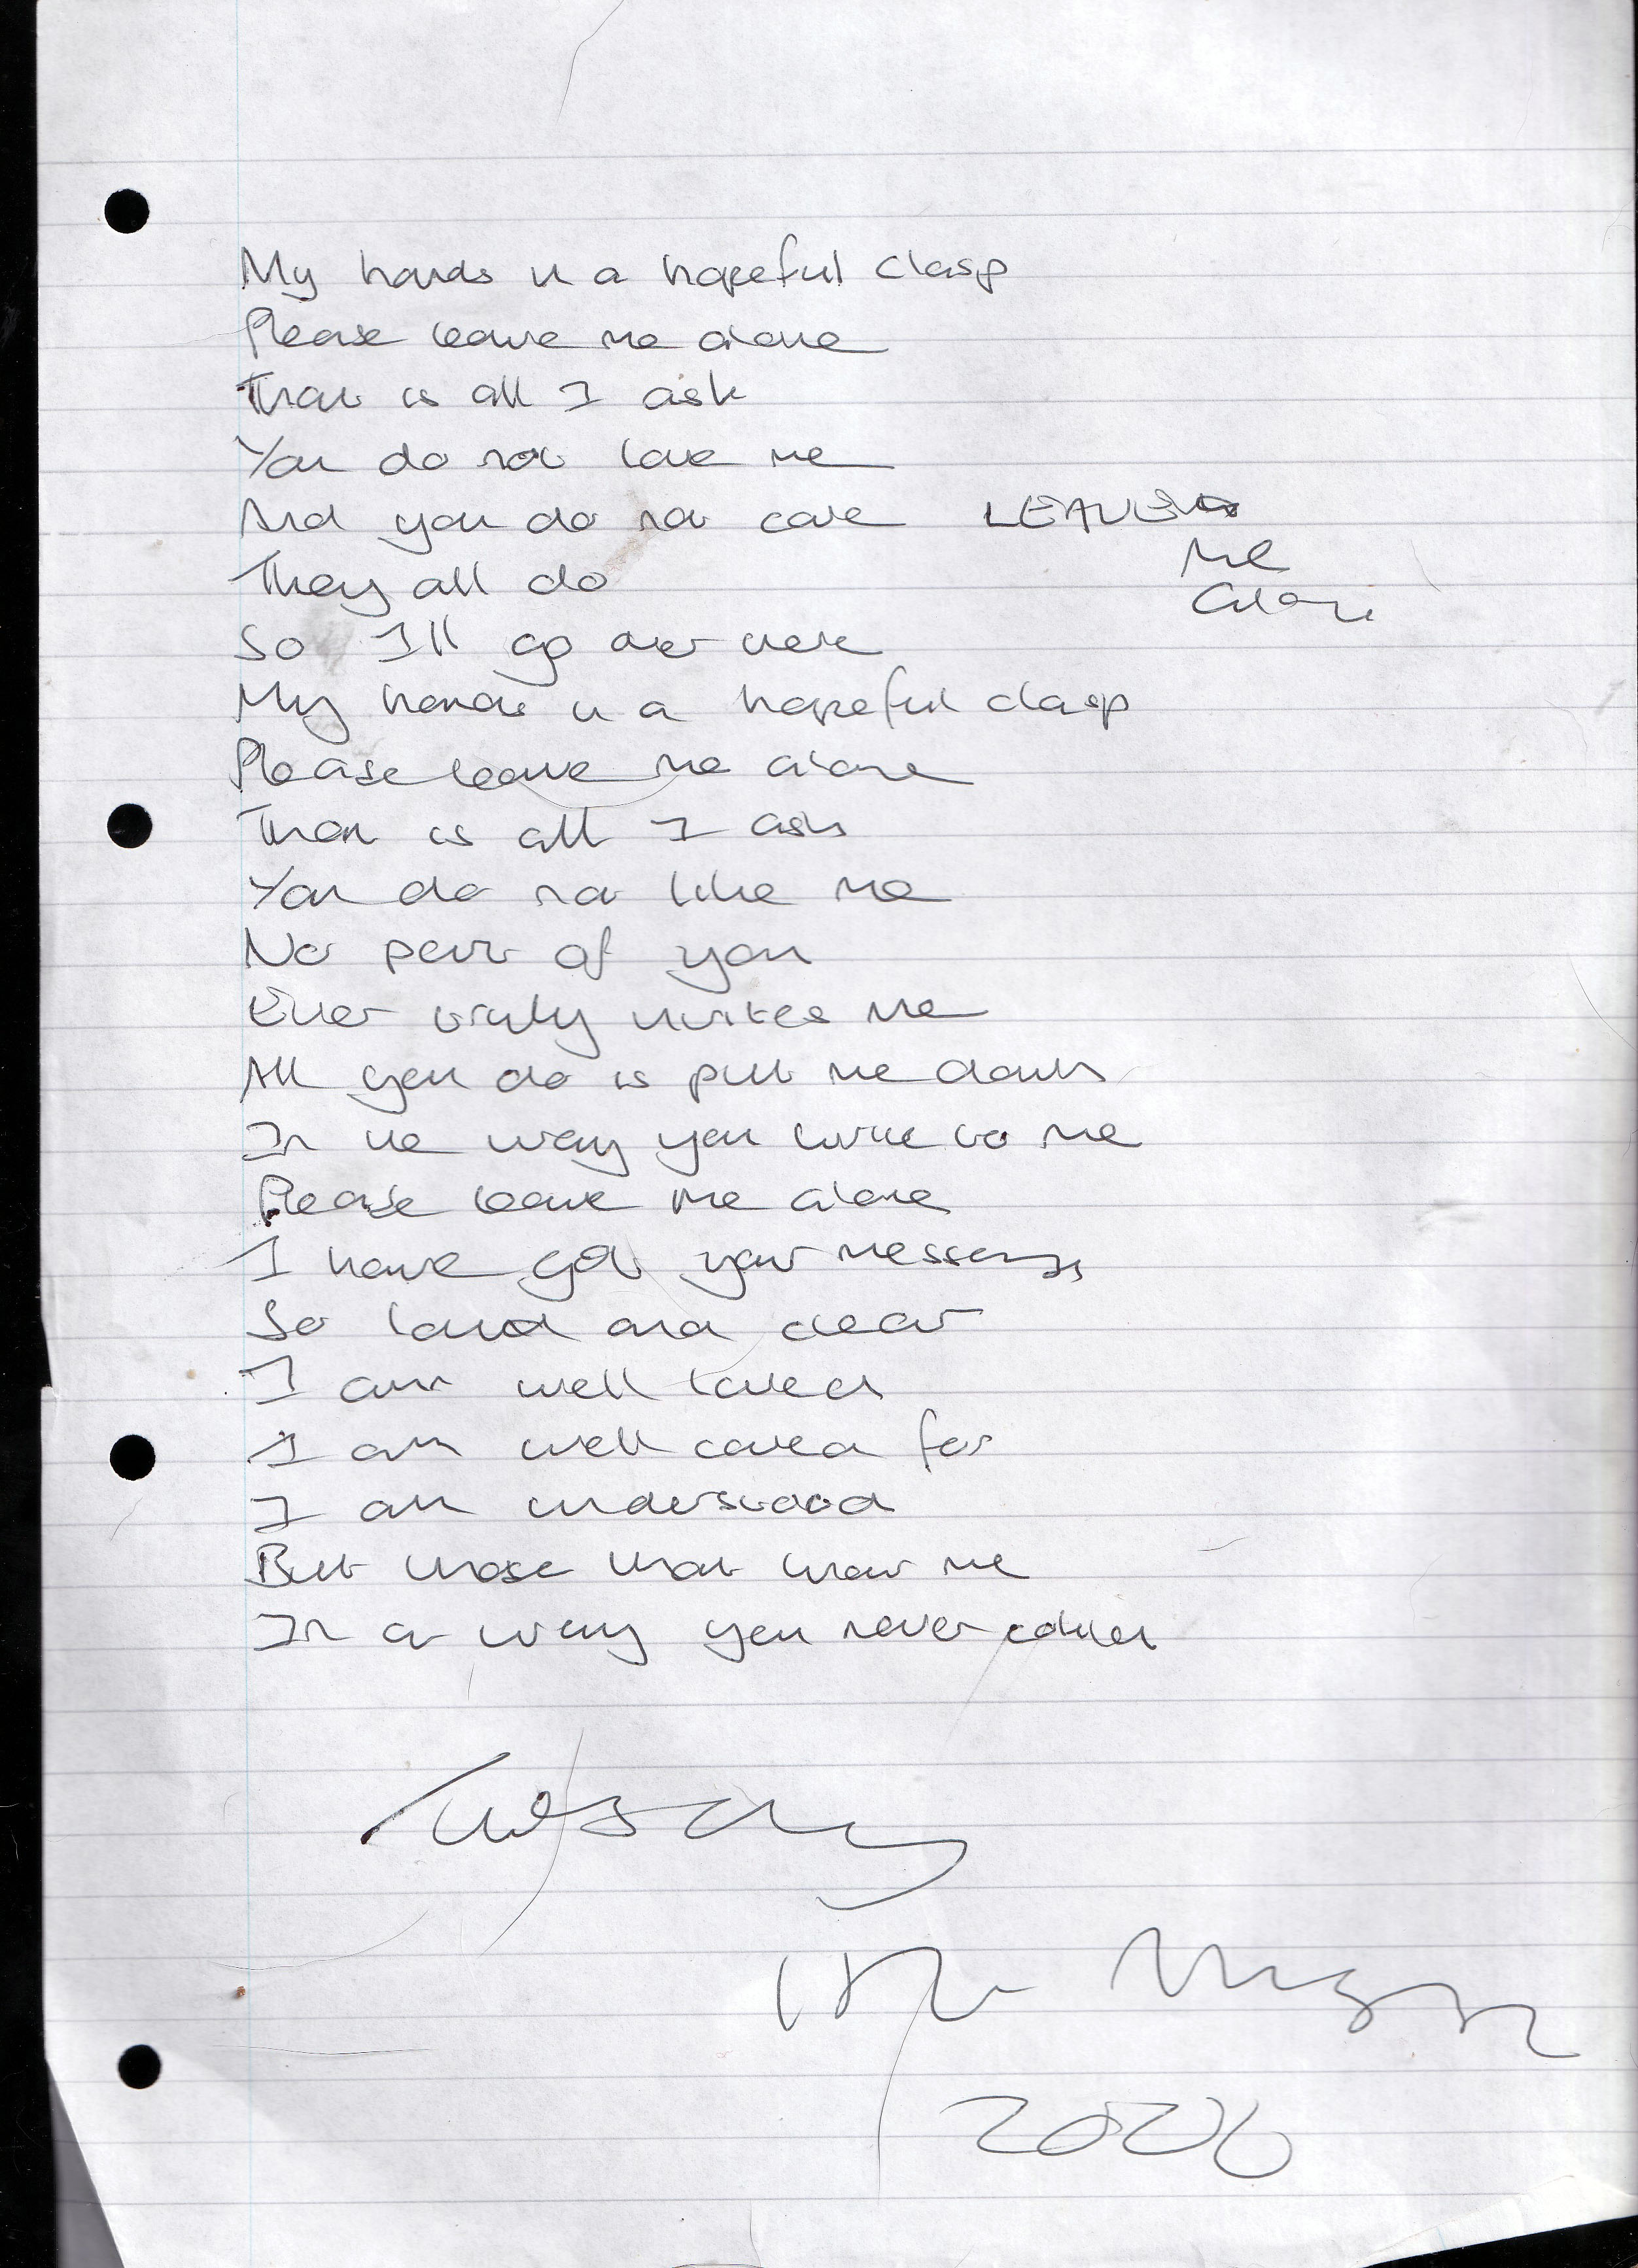 My hands in a hopeful clasp
Please leave me alone
That is all I ask
You do not love me
And you do not care
LEAVE
me
alone
They all do
So I'll go over here
My hands in a hopeful clasp
Please leave me alone
That is all I ask
You do not like me
No part of you
Ever truly invites me
All you do is put me down
In the way you write to me
Please leave me alone
I have got your message
So loud and clear
I am well loved
I am well cared for
I am understood
But those that know me
In a way you never could
Tuesday
2026